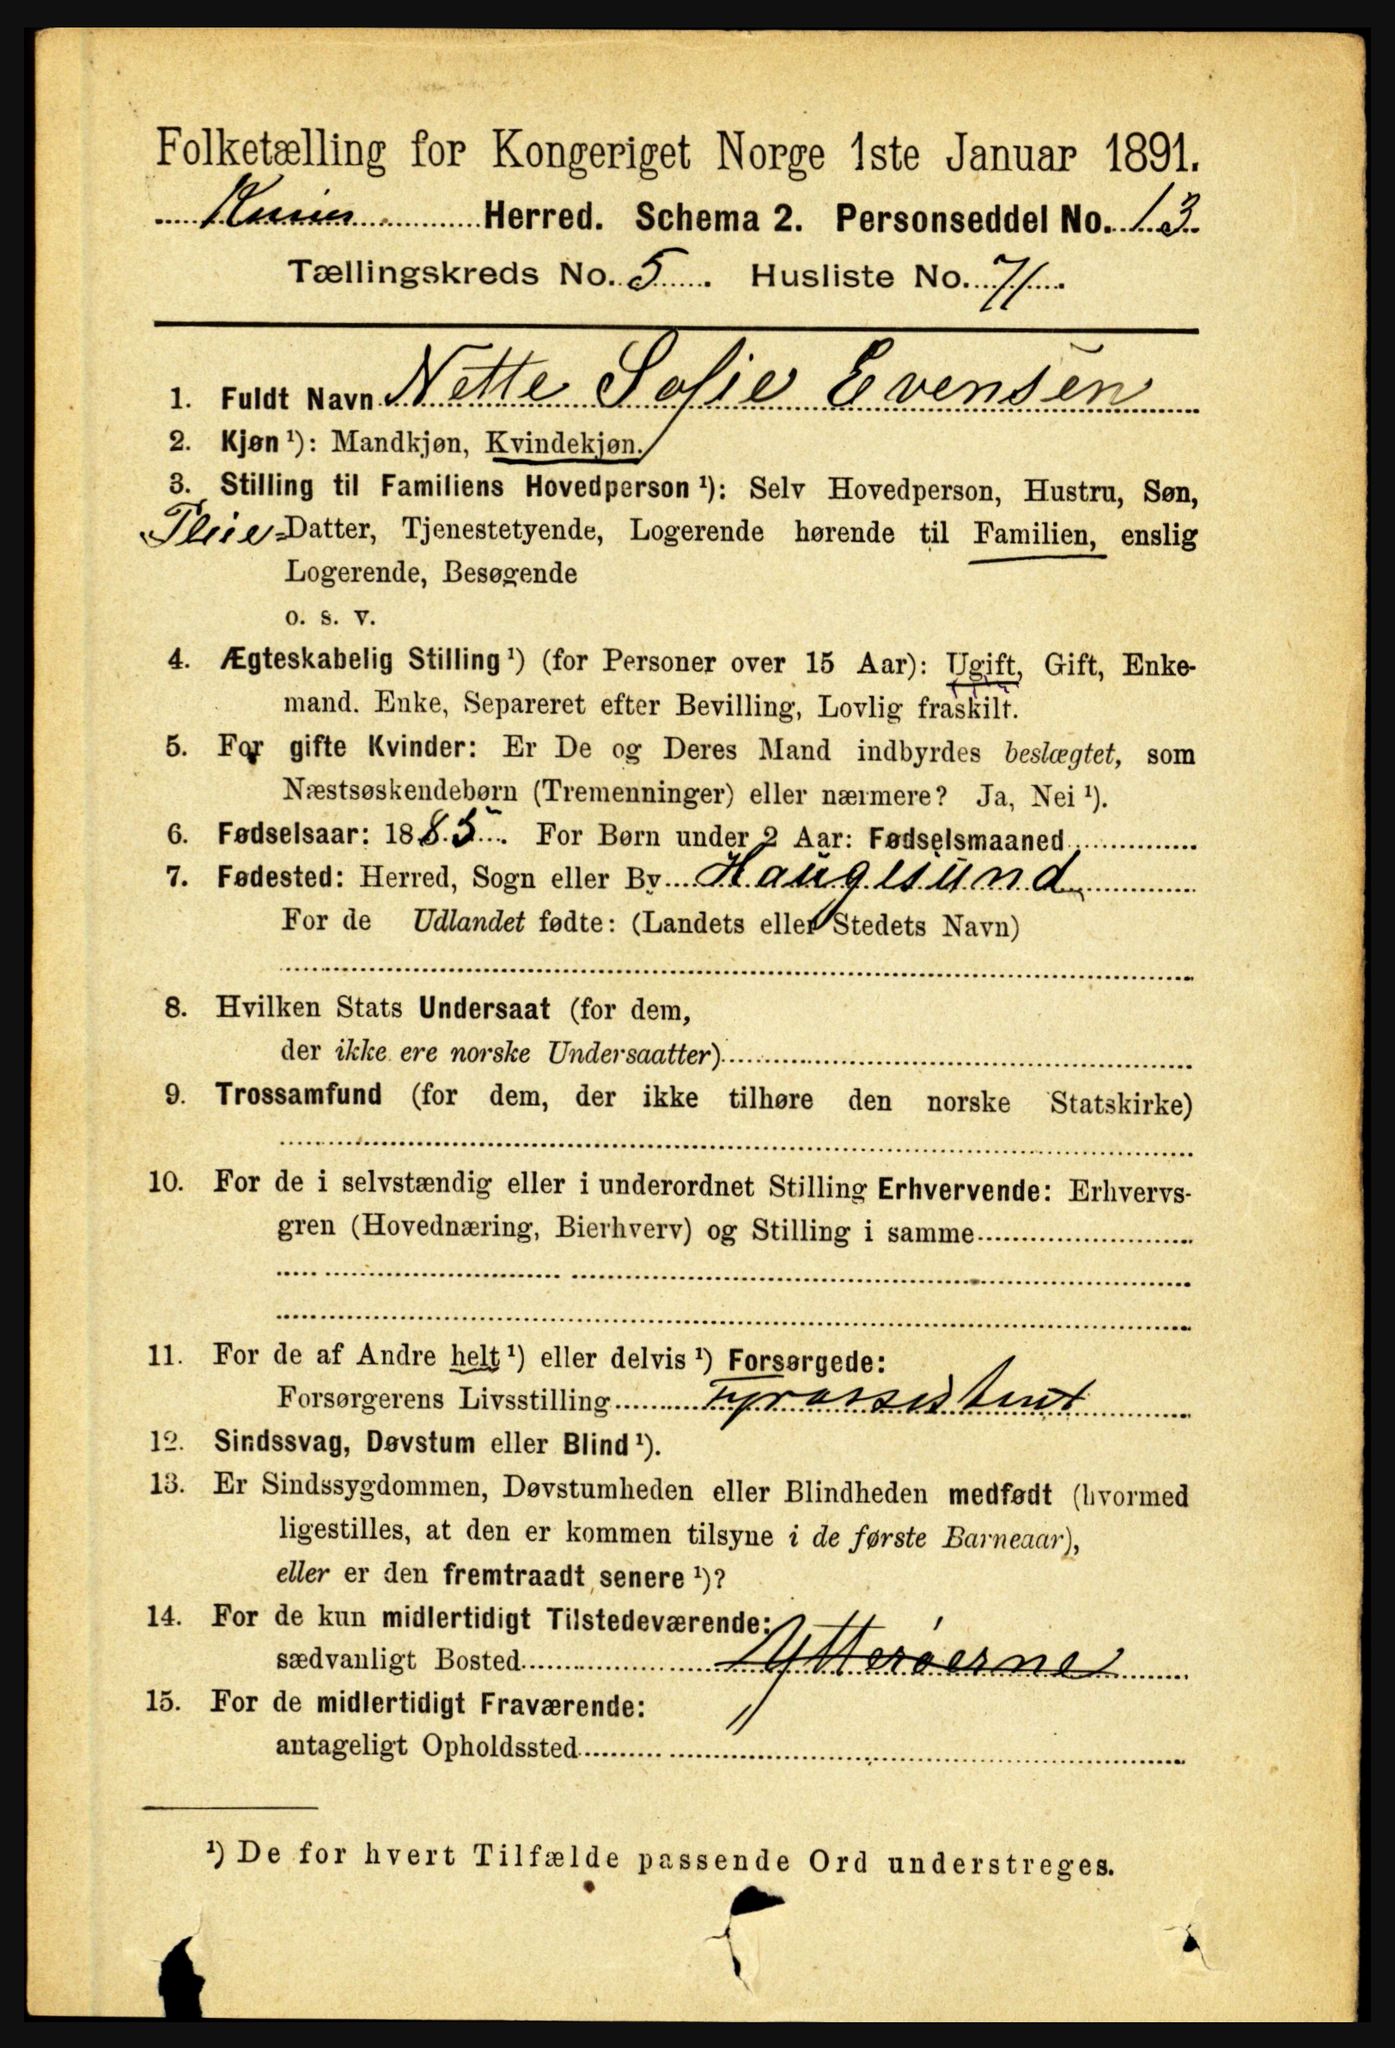 Folketælling for Kongeriget Norge 1ste Januar 1891.
Kinn Herred. Schema 2. Personseddel No. 13
Tællingskreds No. 5. Husliste No. 71.
1. Fuldt Navn Nette Sofie Evensen
2. Kjøn ¹): Mandkjøn, Kvindekjøn.
3. Stilling til Familiens Hovedperson ¹): Selv Hovedperson, Hustru, Søn,
Pleie-Datter, Tjenestetyende, Logerende hørende til Familien, enslig
Logerende, Besøgende
o. s. v.
4. Ægteskabelig Stilling ¹) (for Personer over 15 Aar): Ugift, Gift, Enke-
mand. Enke, Separeret efter Bevilling, Lovlig fraskilt.
5. For gifte Kvinder: Er De og Deres Mand indbyrdes beslægtet, som
Næstsøskendebørn (Tremenninger) eller nærmere? Ja, Nei ¹).
6. Fødselsaar: 1885. For Børn under 2 Aar: Fødselsmaaned
7. Fødested: Herred, Sogn eller By Haugesund
For de Udlandet fødte: (Landets eller Stedets Navn)
8. Hvilken Stats Undersaat (for dem,
der ikke ere norske Undersaatter)
9. Trossamfund (for dem, der ikke tilhøre den norske Statskirke)
10. For de i selvstændig eller i underordnet Stilling Erhvervende: Erhvervs-
gren (Hovednæring, Bierhverv) og Stilling i samme
11. For de af Andre helt ¹) eller delvis ¹) Forsørgede:
Forsørgerens Livsstilling Fyrassistent
12. Sindssvag, Døvstum eller Blind ¹).
13. Er Sindssygdommen, Døvstumheden eller Blindheden medfødt (hvormed
ligestilles, at den er kommen tilsyne i de første Barneaar),
eller er den fremtraadt senere ¹)?
14. For de kun midlertidigt Tilstedeværende:
sædvanligt Bosted Ytterøerne
15. For de midlertidigt Fraværende:
antageligt Opholdssted "
¹) De for hvert Tilfælde passende Ord understreges.